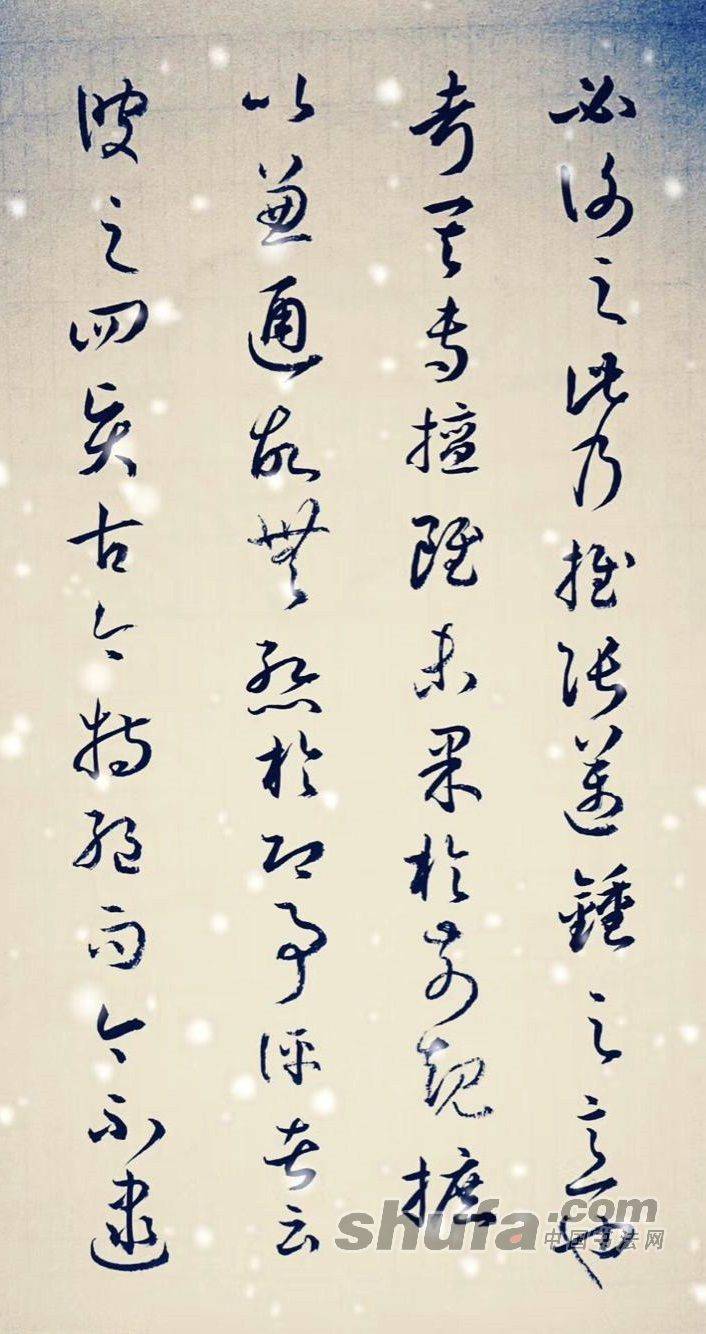 必謝之此乃推張邁鍾之意也
考其專擅雖未果於前規摭
以兼通故無慙於即事評者云
彼之四賢古今特絕而今不逮
shufa.com
中国书法网